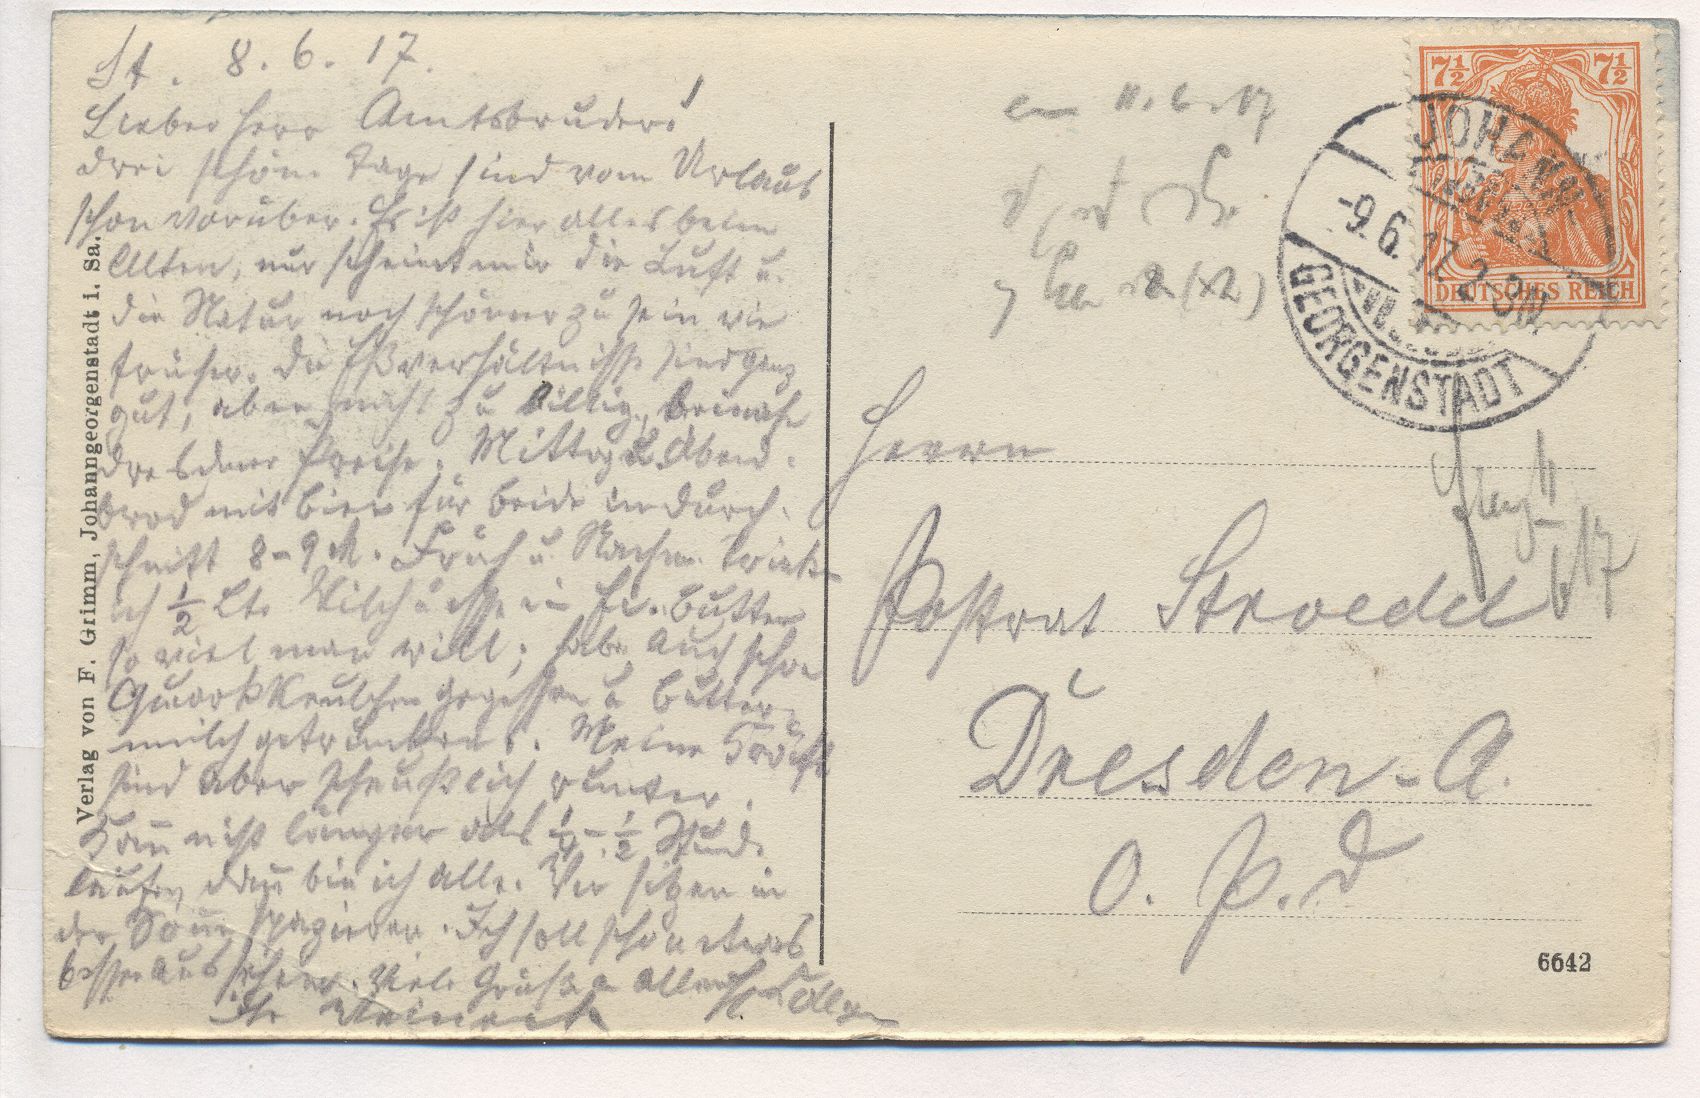 St. 8. 6. 17.
Lieber Herr Amtsbruder!
drei schöne Tage sind vom Urlaub
schon vorüber. Es ist hier alles beim
Alten, nur scheint mir die Luft u.
die Natur noch schöner zu sein wie
früher. Die Eßverhältnisse sind ganz
gut, aber nicht zu billig, beinahe
dresdner Preise. Mittag u. Abend-
brod mit Bier für beide im durch-
schnitt 8-9 M. Früh u. Nachm. trink
ich ½ Ltr Milch u esse Butter
so viel man will; habe auch schon
Quarkkeulchen gegessen u Butter-
milch getrunken. Meine Kräfte
sind aber scheußlich runter.
Kann nicht länger als ¼-½ Stund.
laufen, dann bin ich alle. Wir sitzen in
der Sonne spazieren. Ich soll schon etwas
besser aussehen. Viele Grüße an alle
Ihr
Verlag von F. Grimm, Johanngeorgenstadt i. Sa.
11.6.17
7½ 7½
DEUTSCHES REICH
JOHANN
-9.6.17. 2-3N
GEORGENSTADT
Herrn
Postrat Stroedel
Dresden-A.
O. P. D
6642